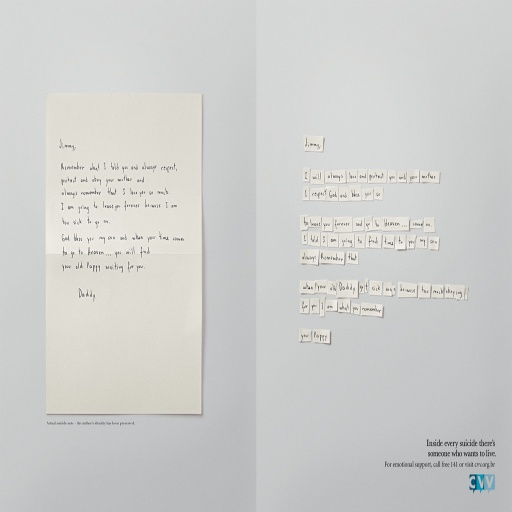 Jimmy,
Remember what I told you and always respect,
protect and obey your mother and
always remember that I love you so much
I am going to leave you forever because I am
too sick to go on.
God bless you my son and when your time comes
to go to Heaven... you will find
your old Pappy waiting for you.
Daddy
Actual suicide note - the author's identity has been preserved.
Jimmy,
I will always love and protect you and your mother
I respect God and bless you so
to leave you forever and go to Heaven...
I told I am going to find time to you my son
always Remember that
when your old Daddy sick because too much obey
for you I am what you remember
your Pappy
Inside every suicide there's
someone who wants to live.
For emotional support, call free 141 or visit cvv.org.br
CVV